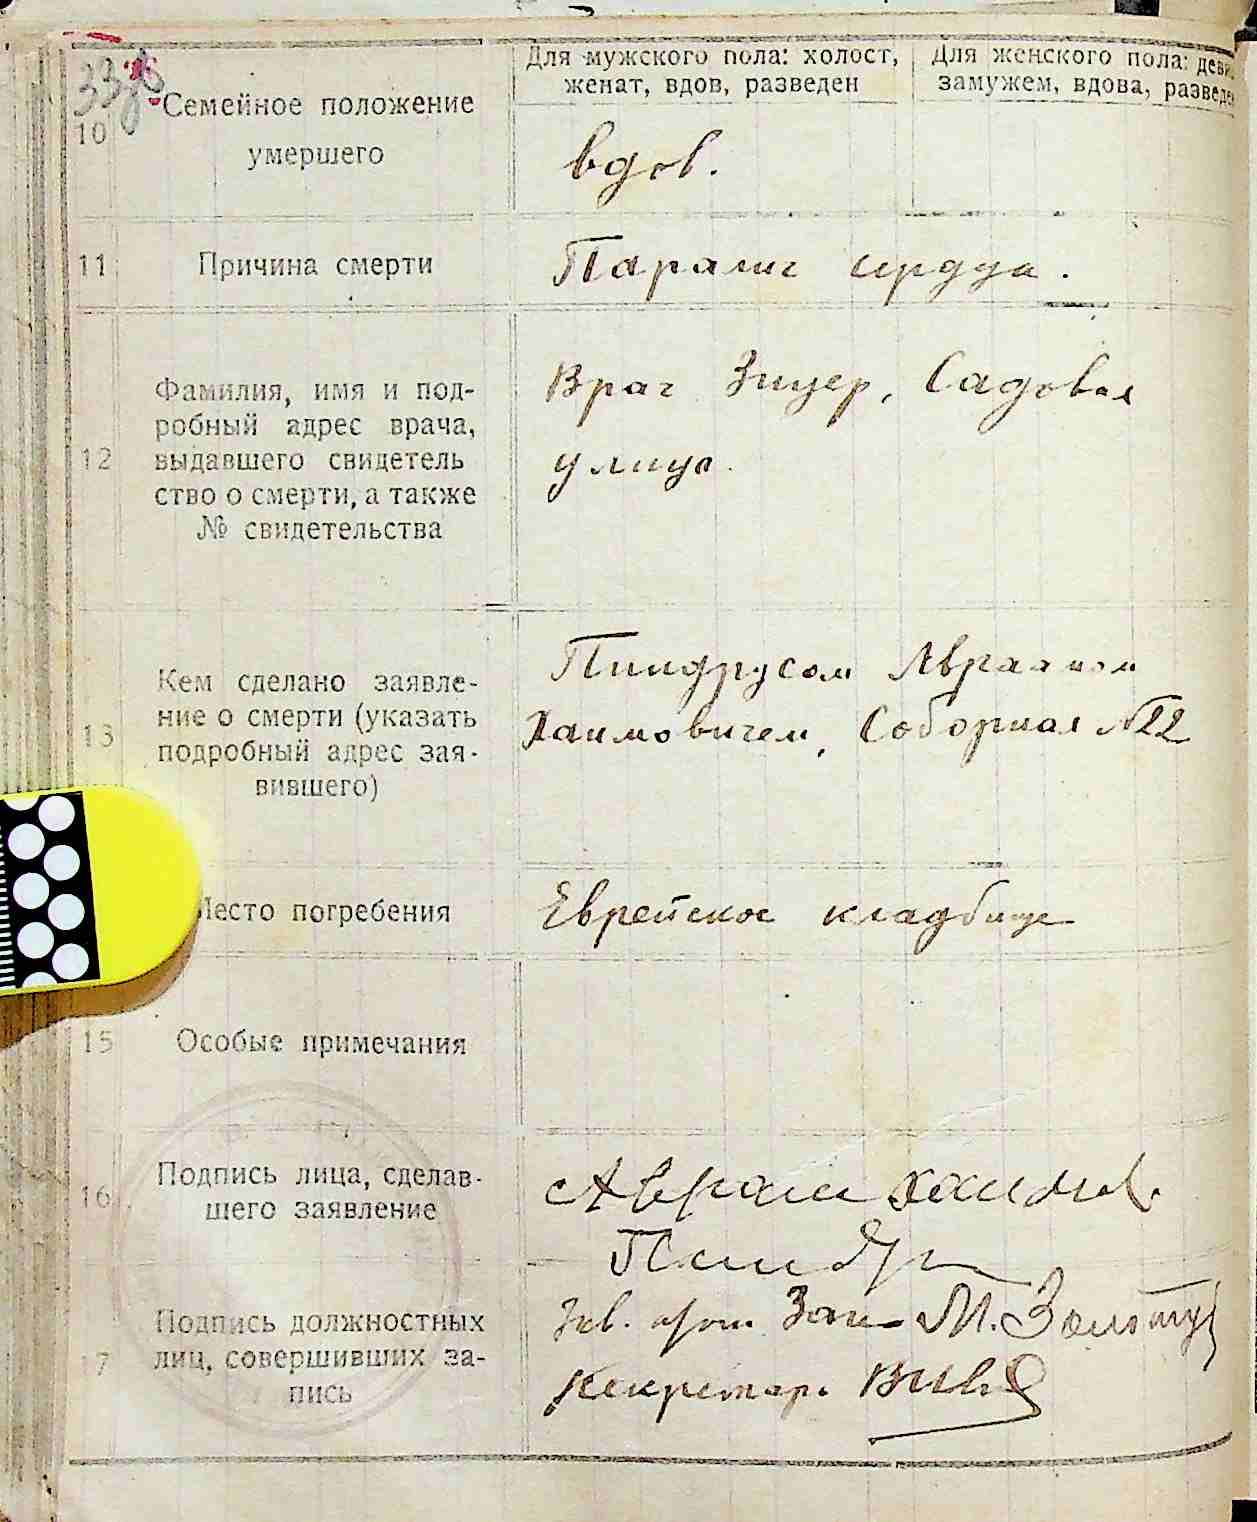 Для мужского пола: холост,
женат, вдов, разведен
Для женского пола: деви
замужем, вдова, разведе
10
Семейное положение
умершего
вдов.
11
Причина смерти
Паралич сердца.
12
Фамилия, имя и под-
робный адрес врача,
выдавшего свидетель
ство о смерти, а также
№ свидетельства
Врач Зицер, Садовая
улица.
13
Кем сделано заявле-
ние о смерти (указать
подробный адрес зая-
вившего)
Пиндрусом Авраамом
Хаимовичем, Соборная №22
Место погребения
Еврейское кладбище
15
Особые примечания
16
Подпись лица, сделав-
шего заявление
Аврам
17
Подпись должностных
лиц, совершивших за-
пись
Зав. М.
Секретарь